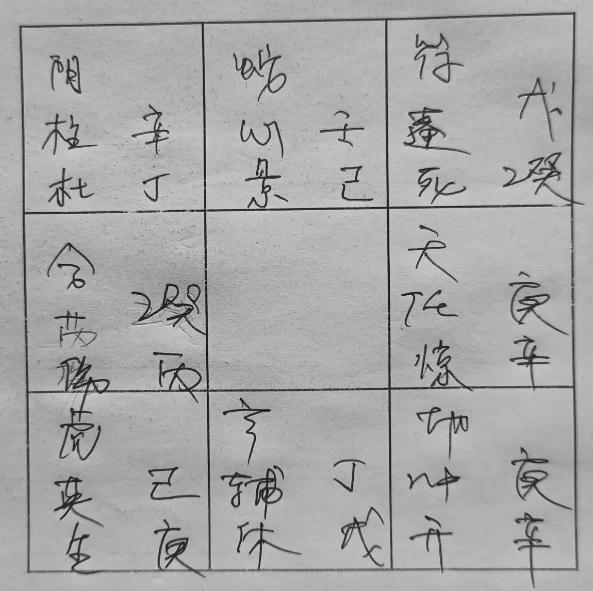 阴
柱 辛
杜 丁
蛇
心 壬
景 己
符
蓬
死 乙癸
合
芮 乙癸
伤 丙
天
任 庚
惊 辛
虎
英 己
生 庚
辅 丁
休 戊
地
冲 庚
开 辛